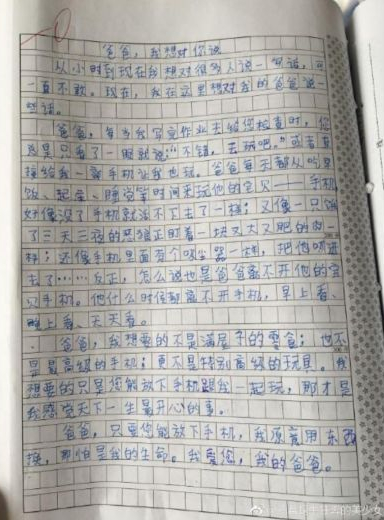 爸爸，我想对你说
从小时到现在我想对很多人说一些话，可
一直不敢。现在，我在这里想对我的爸爸说一
些话。
爸爸，每当我写完作业去给您检查时，您
总是只看了一眼就说：“不错，去玩吧。”或者直
接给我一部手机让我也玩。爸爸每天都从吃早
饭、起床、睡觉等时间来玩他的宝贝——手机，
好像没了手机就活不下去了一样；又像一只饿
了三天三夜的恶狼正盯着一块又大又肥的肉一
样；还像手机里面有个吸尘器一样，把他吸进
去了……反正，怎么说也是爸爸离不开他的宝
贝手机。他什么时候都离不开手机，早上看、
晚上看、天天看。
爸爸，我想要的不是满屋子的零食；也不
是最高级的手机；更不是特别高级的玩具。我
想要的只是您能放下手机跟我一起玩，那才是
我感觉天下一生最开心的事。
爸爸，只要您能放下手机，我愿意用东西
换，哪怕是我的生命。我爱您，我的爸爸。
的美少女